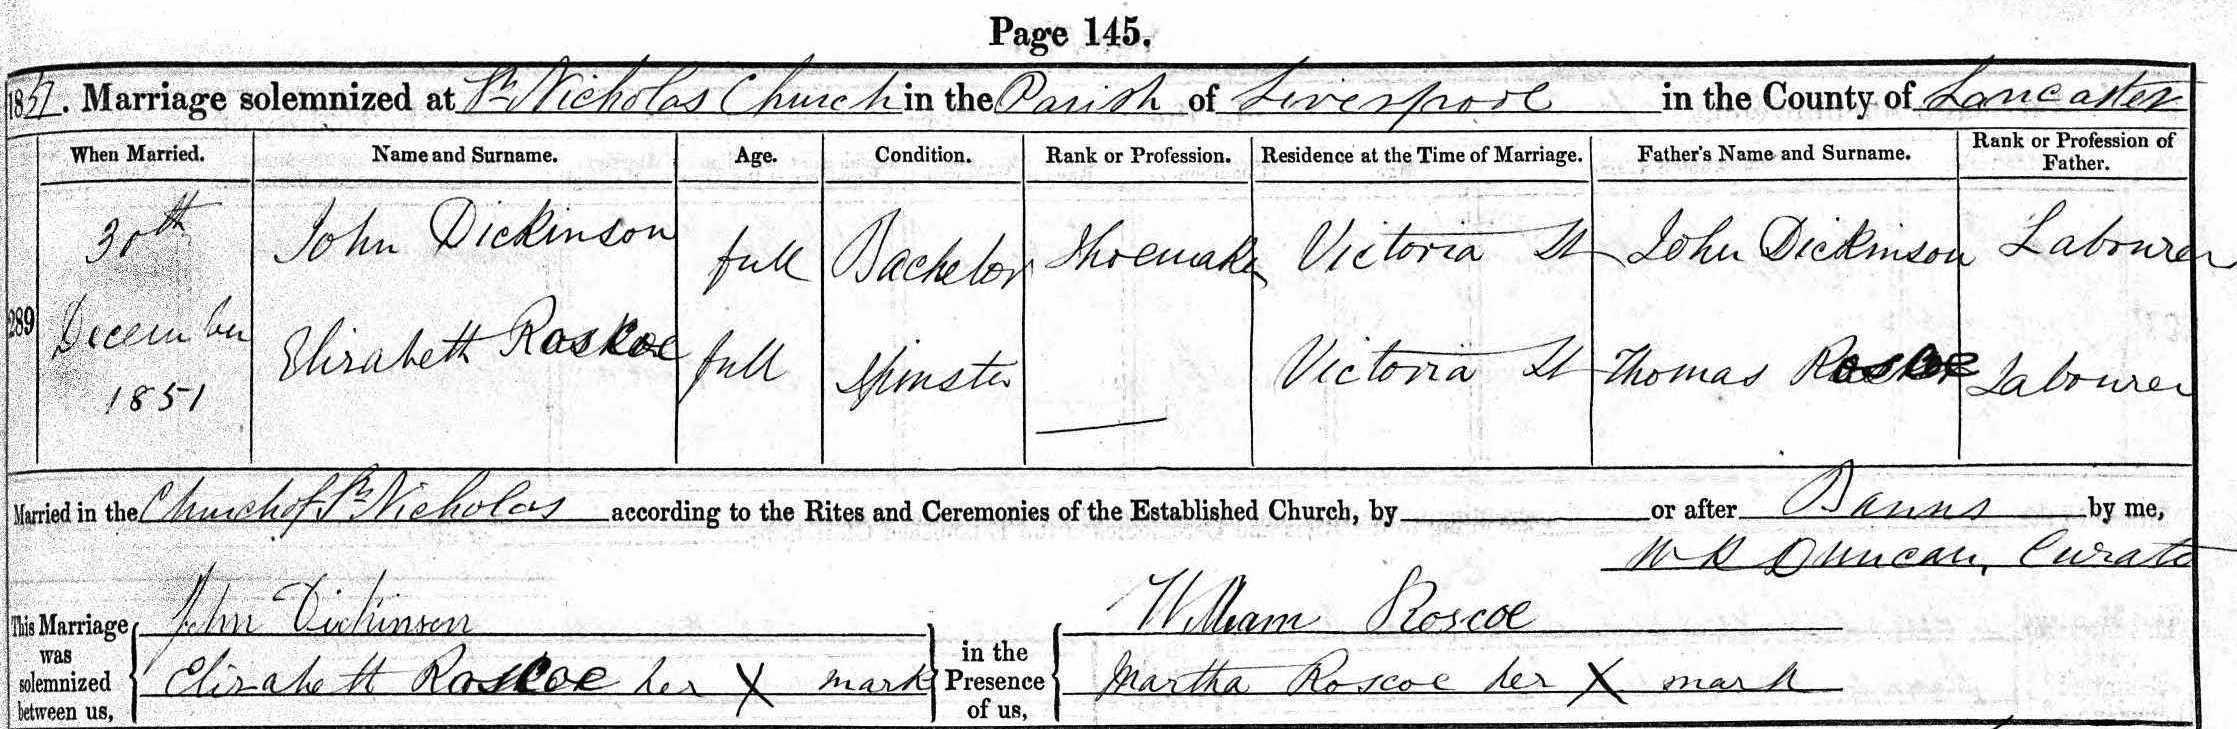 Page 145.
1851. Marriage solemnized at St Nicholas Church in the Parish of Liverpool in the County of Lancaster
When Married. Name and Surname. Age. Condition. Rank or Profession. Residence at the Time of Marriage. Father's Name and Surname. Rank or Profession of Father.
30th John Dickinson full Bachelor Shoemaker Victoria St John Dickinson Labourer
289 December Elizabeth Roskoe full Spinster Victoria St Thomas Roskoe Labourer
1851
Married in the Church of St Nicholas according to the Rites and Ceremonies of the Established Church, by or after Banns by me,
W R Duncan, Curate
This Marriage was solemnized between us, John Dickinson in the Presence of us, William Roscoe
Elizabeth Roscoe her X mark Martha Roscoe her X mark